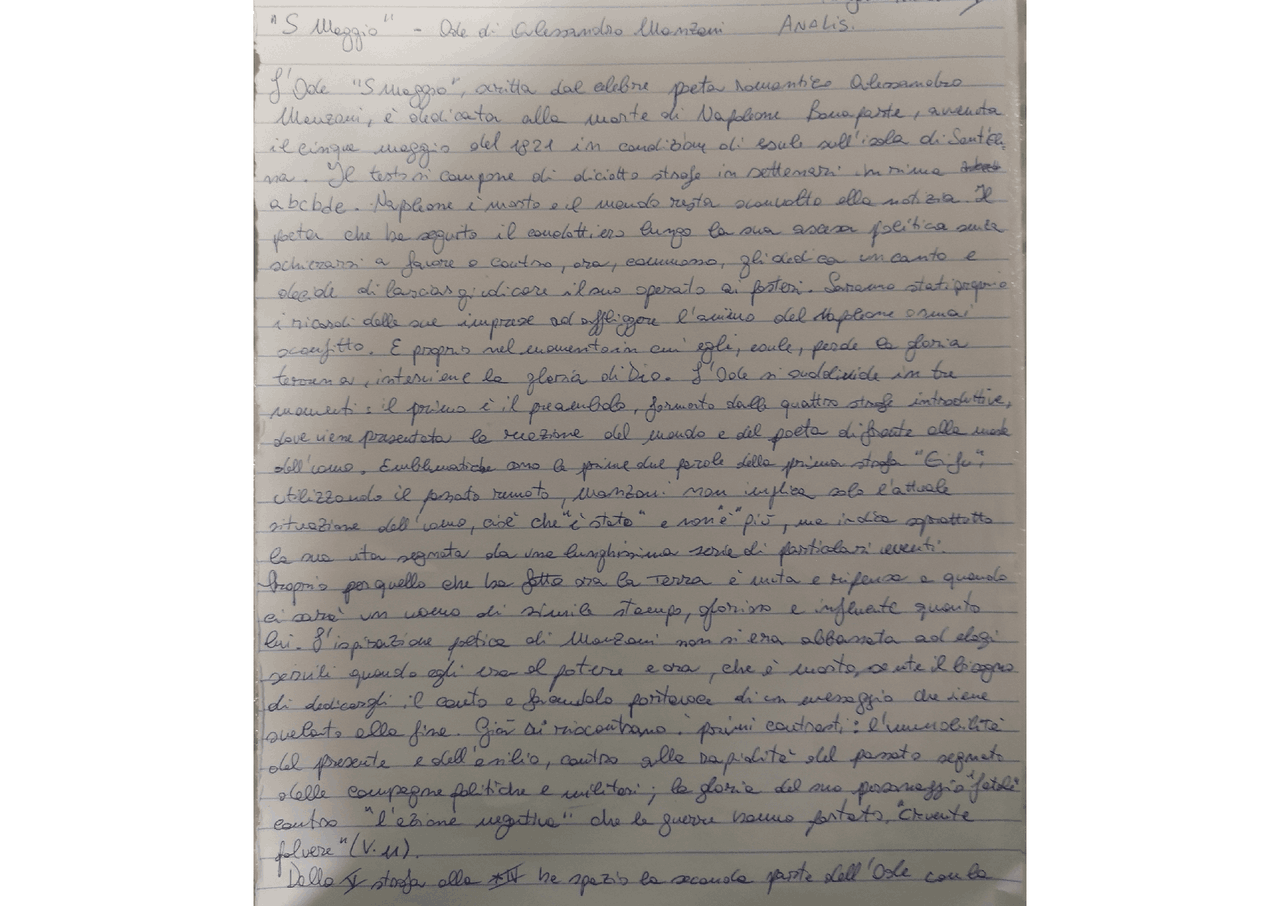 "5 Maggio" - Ode di Alessandro Manzoni ANALIS.
L'Ode "5 maggio", scritta dal celebre poeta romantico Alessandro
Manzoni, è dedicata alla morte di Napoleone Bonaparte, avvenuta
il cinque maggio del 1821 in condizione di esule sull'isola di Sant'Ele
na. Il testo si compone di diciotto strofe in settenari in rima
abcbde. Napoleone è morto e il mondo resta sconvolto alla notizia. Il
poeta che ha seguito il condottiero lungo la sua ascesa politica senza
schierarsi a favore o contro, ora, commosso, gli dedica un canto e
decide di lasciar giudicare il suo operato ai posteri. Saranno stati proprio
i ricordi delle sue imprese ad affliggere l'animo del Napoleone ormai
sconfitto. E proprio nel momento in cui egli, esule, perde la gloria
terrena, interviene la gloria di Dio. L'Ode si suddivide in tre
momenti: il primo è il preambolo, formato dalle quattro strofe introduttive,
dove viene presentata la reazione del mondo e del poeta di fronte alla morte
dell'uomo. Emblematiche sono le prime due parole della prima strofa "Ei fu":
utilizzando il passato remoto, Manzoni non implica solo l'attuale
situazione dell'uomo, cioè che "è stato" e non "è" più, ma indica soprattutto
la sua vita segnata da una lunghissima serie di particolari eventi.
Proprio per quello che ha fatto ora la Terra è muta e ripensa a quando
ci sarà un uomo di simile stampo, glorioso e influente quanto
lui. L'ispirazione poetica di Manzoni non si era abbassata ad elogi
servili quando egli era al potere e ora, che è morto, sente il bisogno
di dedicargli il canto e facendolo portavoce di un messaggio che viene
svelato alla fine. Già si riscontrano i primi contrasti: l'immobilità
del presente e dell'esilio, contro alla rapidità del passato segnato
dalle campagne politiche e militari; la gloria del suo personaggio "fatale"
contro "l'azione negativa" che le guerre hanno portato, "cruenta
polvere" (V. 11).
Dalla V strofa alla XIV ha spazio la seconda parte dell'Ode con la